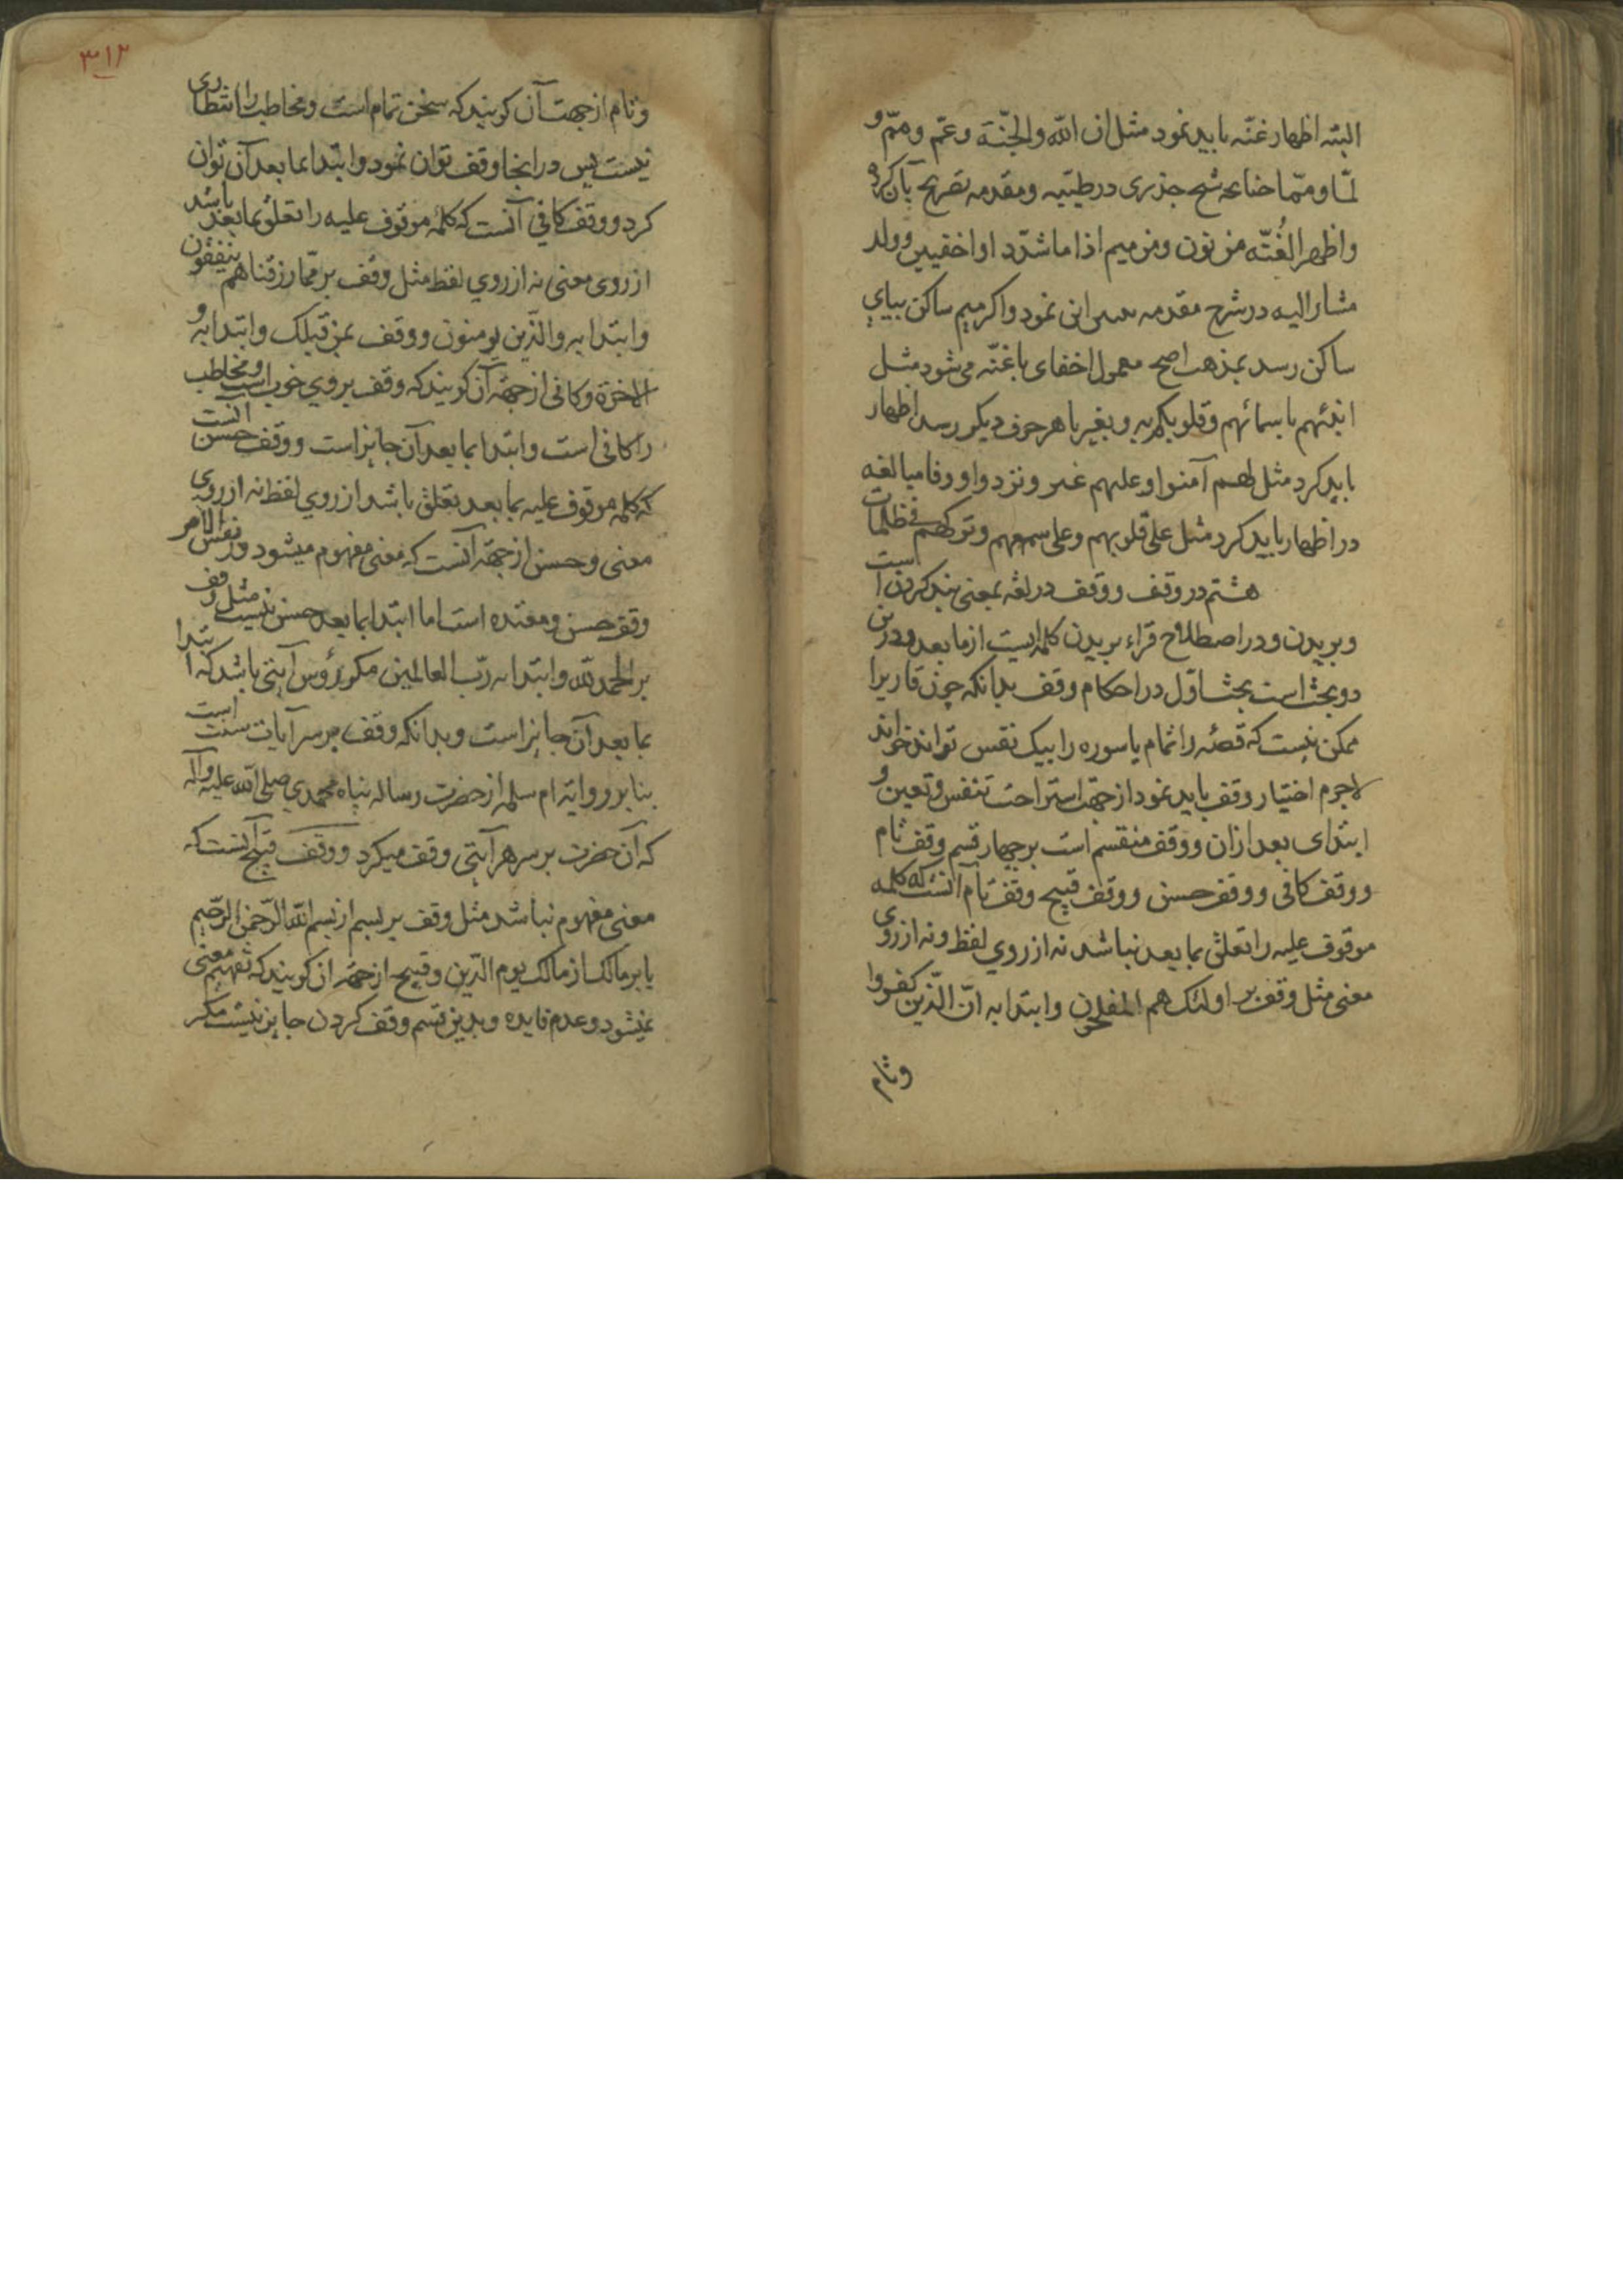 البته اظهار غنّه باید نمود مثل ان الله والجنّة وعمّ وممّ و
لمّا وممّا چنانچه شیخ جزری در طیّبه ومقدمه تصریح بآن کرد
واظهر الغُنّه من نون ومن میم اذا ما شدّدا واخفین وولد
مشار الیه در شرح مقدمه این نمود واکر میم ساکن ببای
ساکن رسد بمذهب اصح معمول اخفای باغنّه می شود مثل
انبئهم باسمائهم وقلوبکم به وبغیر با هر حرف دیکر رسد اظهار
باید کرد مثل لهم آمنوا وعلیهم غیر ونزد واو وفا مبالغه
در اظهار باید کرد مثل علی قلوبهم وعلی سمعهم وترکهم فی ظلمات
هشتم در وقف ووقف در لغه بمعنی بند کردن است
وبریدن ودر اصطلاح قراء بریدن کلمه ایست از ما بعد ودرین
دو بحث است بحث اول در احکام وقف بدانکه چون قاریرا
ممکن نیست که قصّه را تمام یا سوره را بیک نفس تواند خواند
لاجرم اختیار وقف باید نمود از جهت استراحت تنفس وتعین و
ابتدای بعد ازان ووقف منقسم است بر چهار قسم وقف تام
ووقف کافی ووقف حسن ووقف قبیح وقف تام آنست که کلمه
موقوف علیه را تعلق بما بعد نباشد نه از روی لفظ ونه از روی
معنی مثل وقف بر اولئک هم المفلحون وابتدا به انّ الذّین کفروا
وتام
۳۱۲
وتام از جهت آن کویند که سخن تمام است ومخاطب را انتظاری
نیست پس در اینجا وقف توان نمود وابتدا بما بعد آن توان
کرد ووقف کافی آنست که کلمه موقوف علیه را تعلق بما بعد باشد
از روی معنی نه از روی لفظ مثل وقف بر ممّا رزقناهم ینفقون
وابتدا به والذّین یومنون ووقف بمن قبلک وابتدا به و
الاخرة وکافی از جهة آن کویند که وقف بر وی خوب است ومخاطب
را کافی است وابتدا بما بعد آن جایز است ووقف حسن آنست
که کلمه موقوف علیه بما بعد تعلق باشد از روی لفظ نه از روی
معنی وحسن از جهة آنست که معنی مفهوم میشود ودر نفس الامر
وقف حسن ومفیده است اما ابتدا بما بعد حسن نیست مثل وقف
بر الحمد لله وابتدا به ربّ العالمین مکر رؤس آیتی باشد که ابتدا
بما بعد آن جایز است وبدانکه وقف بر سر آیات سنت است
بنا بر روایة ام سلمه از حضرت رساله پناه محمدی صلی الله علیه وآله
که آن حضرت بر سر هر آیتی وقف میکرد ووقف قبیح آنست که
معنی مفهوم نباشد مثل وقف بر بسم از بسم الله الرّحمن الرّحیم
یا بر مالک از مالک یوم الدّین وقبیح از جهة ان کویند که تفهیم معنی
نمیشود وعدم فایده وبدین قسم وقف کردن جایز نیست مکر